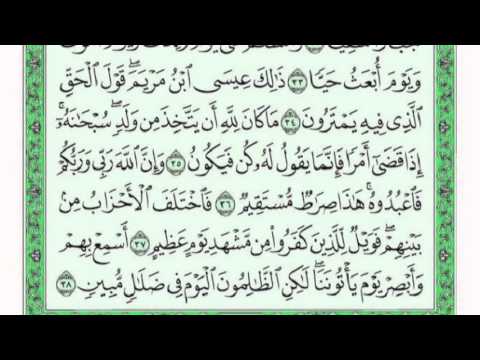 وَيَوْمَ أُبْعَثُ حَيًّا ٣٣ ذَٰلِكَ عِيسَى ٱبْنُ مَرْيَمَ ۚ قَوْلَ ٱلْحَقِّ
ٱلَّذِى فِيهِ يَمْتَرُونَ ٣٤ مَا كَانَ لِلَّهِ أَن يَتَّخِذَ مِن وَلَدٍ ۖ سُبْحَٰنَهُۥٓ ۚ
إِذَا قَضَىٰٓ أَمْرًا فَإِنَّمَا يَقُولُ لَهُۥ كُن فَيَكُونُ ٣٥ وَإِنَّ ٱللَّهَ رَبِّى وَرَبُّكُمْ
فَٱعْبُدُوهُ ۚ هَٰذَا صِرَٰطٌ مُّسْتَقِيمٌ ٣٦ فَٱخْتَلَفَ ٱلْأَحْزَابُ مِنۢ
بَيْنِهِمْ ۖ فَوَيْلٌ لِّلَّذِينَ كَفَرُوا۟ مِن مَّشْهَدِ يَوْمٍ عَظِيمٍ ٣٧ أَسْمِعْ بِهِمْ
وَأَبْصِرْ يَوْمَ يَأْتُونَنَا ۖ لَٰكِنِ ٱلظَّٰلِمُونَ ٱلْيَوْمَ فِى ضَلَٰلٍ مُّبِينٍ ٣٨